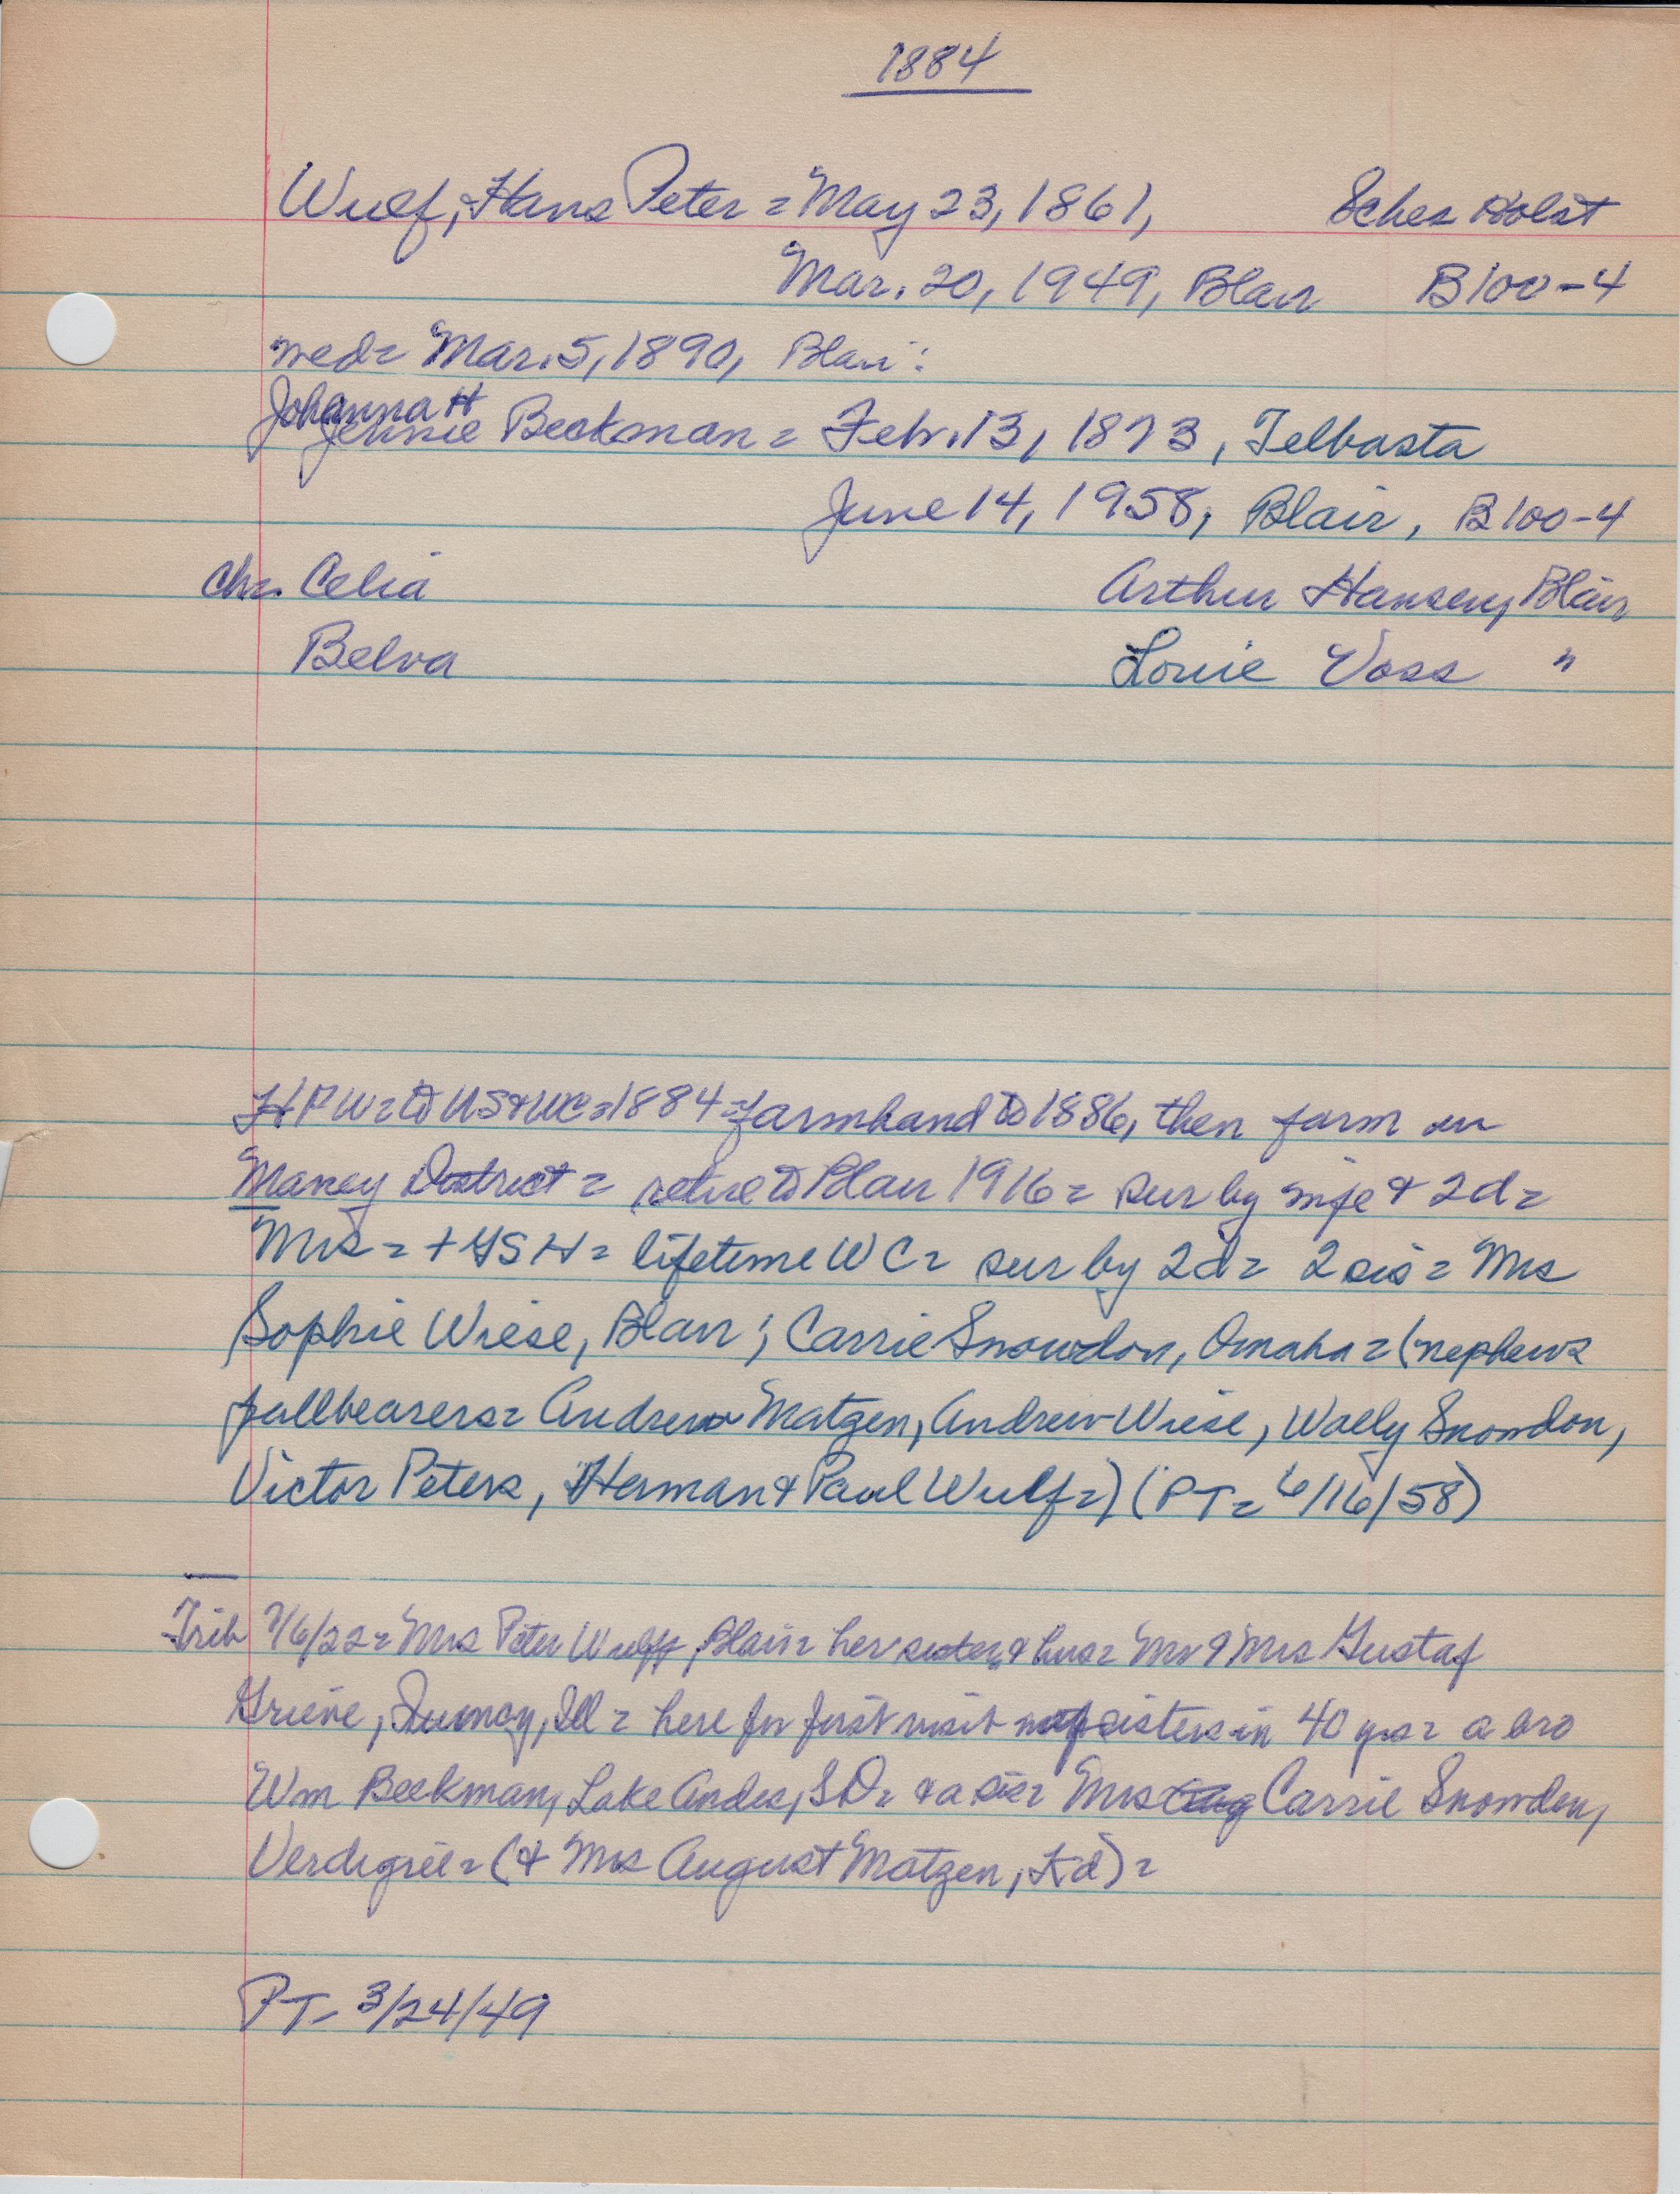 1884
Wulf, Hans Peter = May 23, 1861, Sches Holst
Mar. 20, 1949, Blair B100-4
wed= Mar. 5, 1890, Blair:
Johanna H
Jennie Beckman = Feb. 13, 1873, Telbasta
June 14, 1958, Blair, B100-4
ch=. Celia Arthur Hansen, Blair
Belva Louie Voss "
HPW= to US & WC=1884= farmhand to 1886, then farm in
Maney District = retire to Blair 1916 = sur by wife & 2d=
Mrs = + = lifetime WC= sur by 2d= 2 sis = Mrs
Sophie Wiese, Blair; Carrie Snowdon, Omaha = (nephews
pallbearers= Andrew Matzen, Andrew Wiese, Wally Snowdon,
Victor Peters, Herman & Paul Wulf=) (PT= 6/16/58)
Trib 7/6/22= Mrs Peter Wulff, Blair= her sister & hus= Mr & Mrs Gustaf
Grieve, Quincy, Ill = here for first visit of sisters in 40 yrs= a bro
Wm Beekman, Lake Andes, SD= & a sis= Mrs Carrie Snowden,
Verdigree= (& Mrs August Matzen, Kd)=
PT- 3/24/49